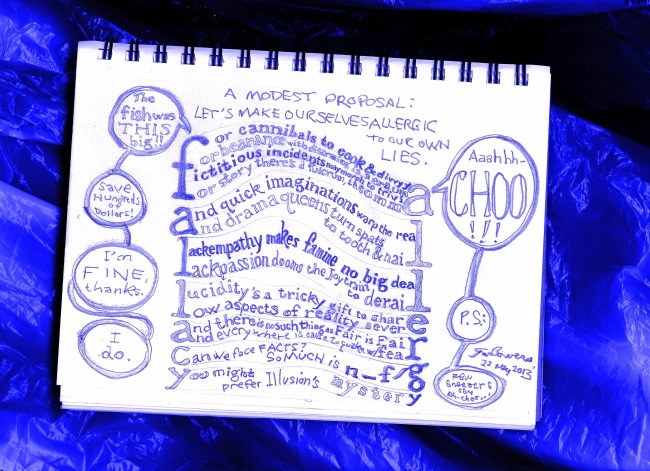 A MODEST PROPOSAL:
LET'S MAKE OURSELVES ALLERGIC
TO OUR OWN
LIES.
The
fish was
THIS
big!!
Save
Hundreds
of
Dollars!
I'm
FINE,
thanks.
I
do.
for cannibals to cook & divvy
forbearance with
fictitious incidents may morph to trivia
for story there's a fulcrum, the comma
and quick imaginations warp the real
and drama queens turn spats
to tooth & nail
lack empathy makes famine no big deal
lack passion dooms the Joytrain
to derail
lucidity's a tricky gift to share
low aspects of reality sever
and there is no such thing as Fair is Fair
and everywhere is cause to quake w/ fear
Can we face FACTS?
So MUCH is n_f/g
you might
prefer Illusion's mystery
Aaahhh-
CHOO
!!!
P.S:
22 May 2013
Few
Sneezers
Say
Ah-choo...